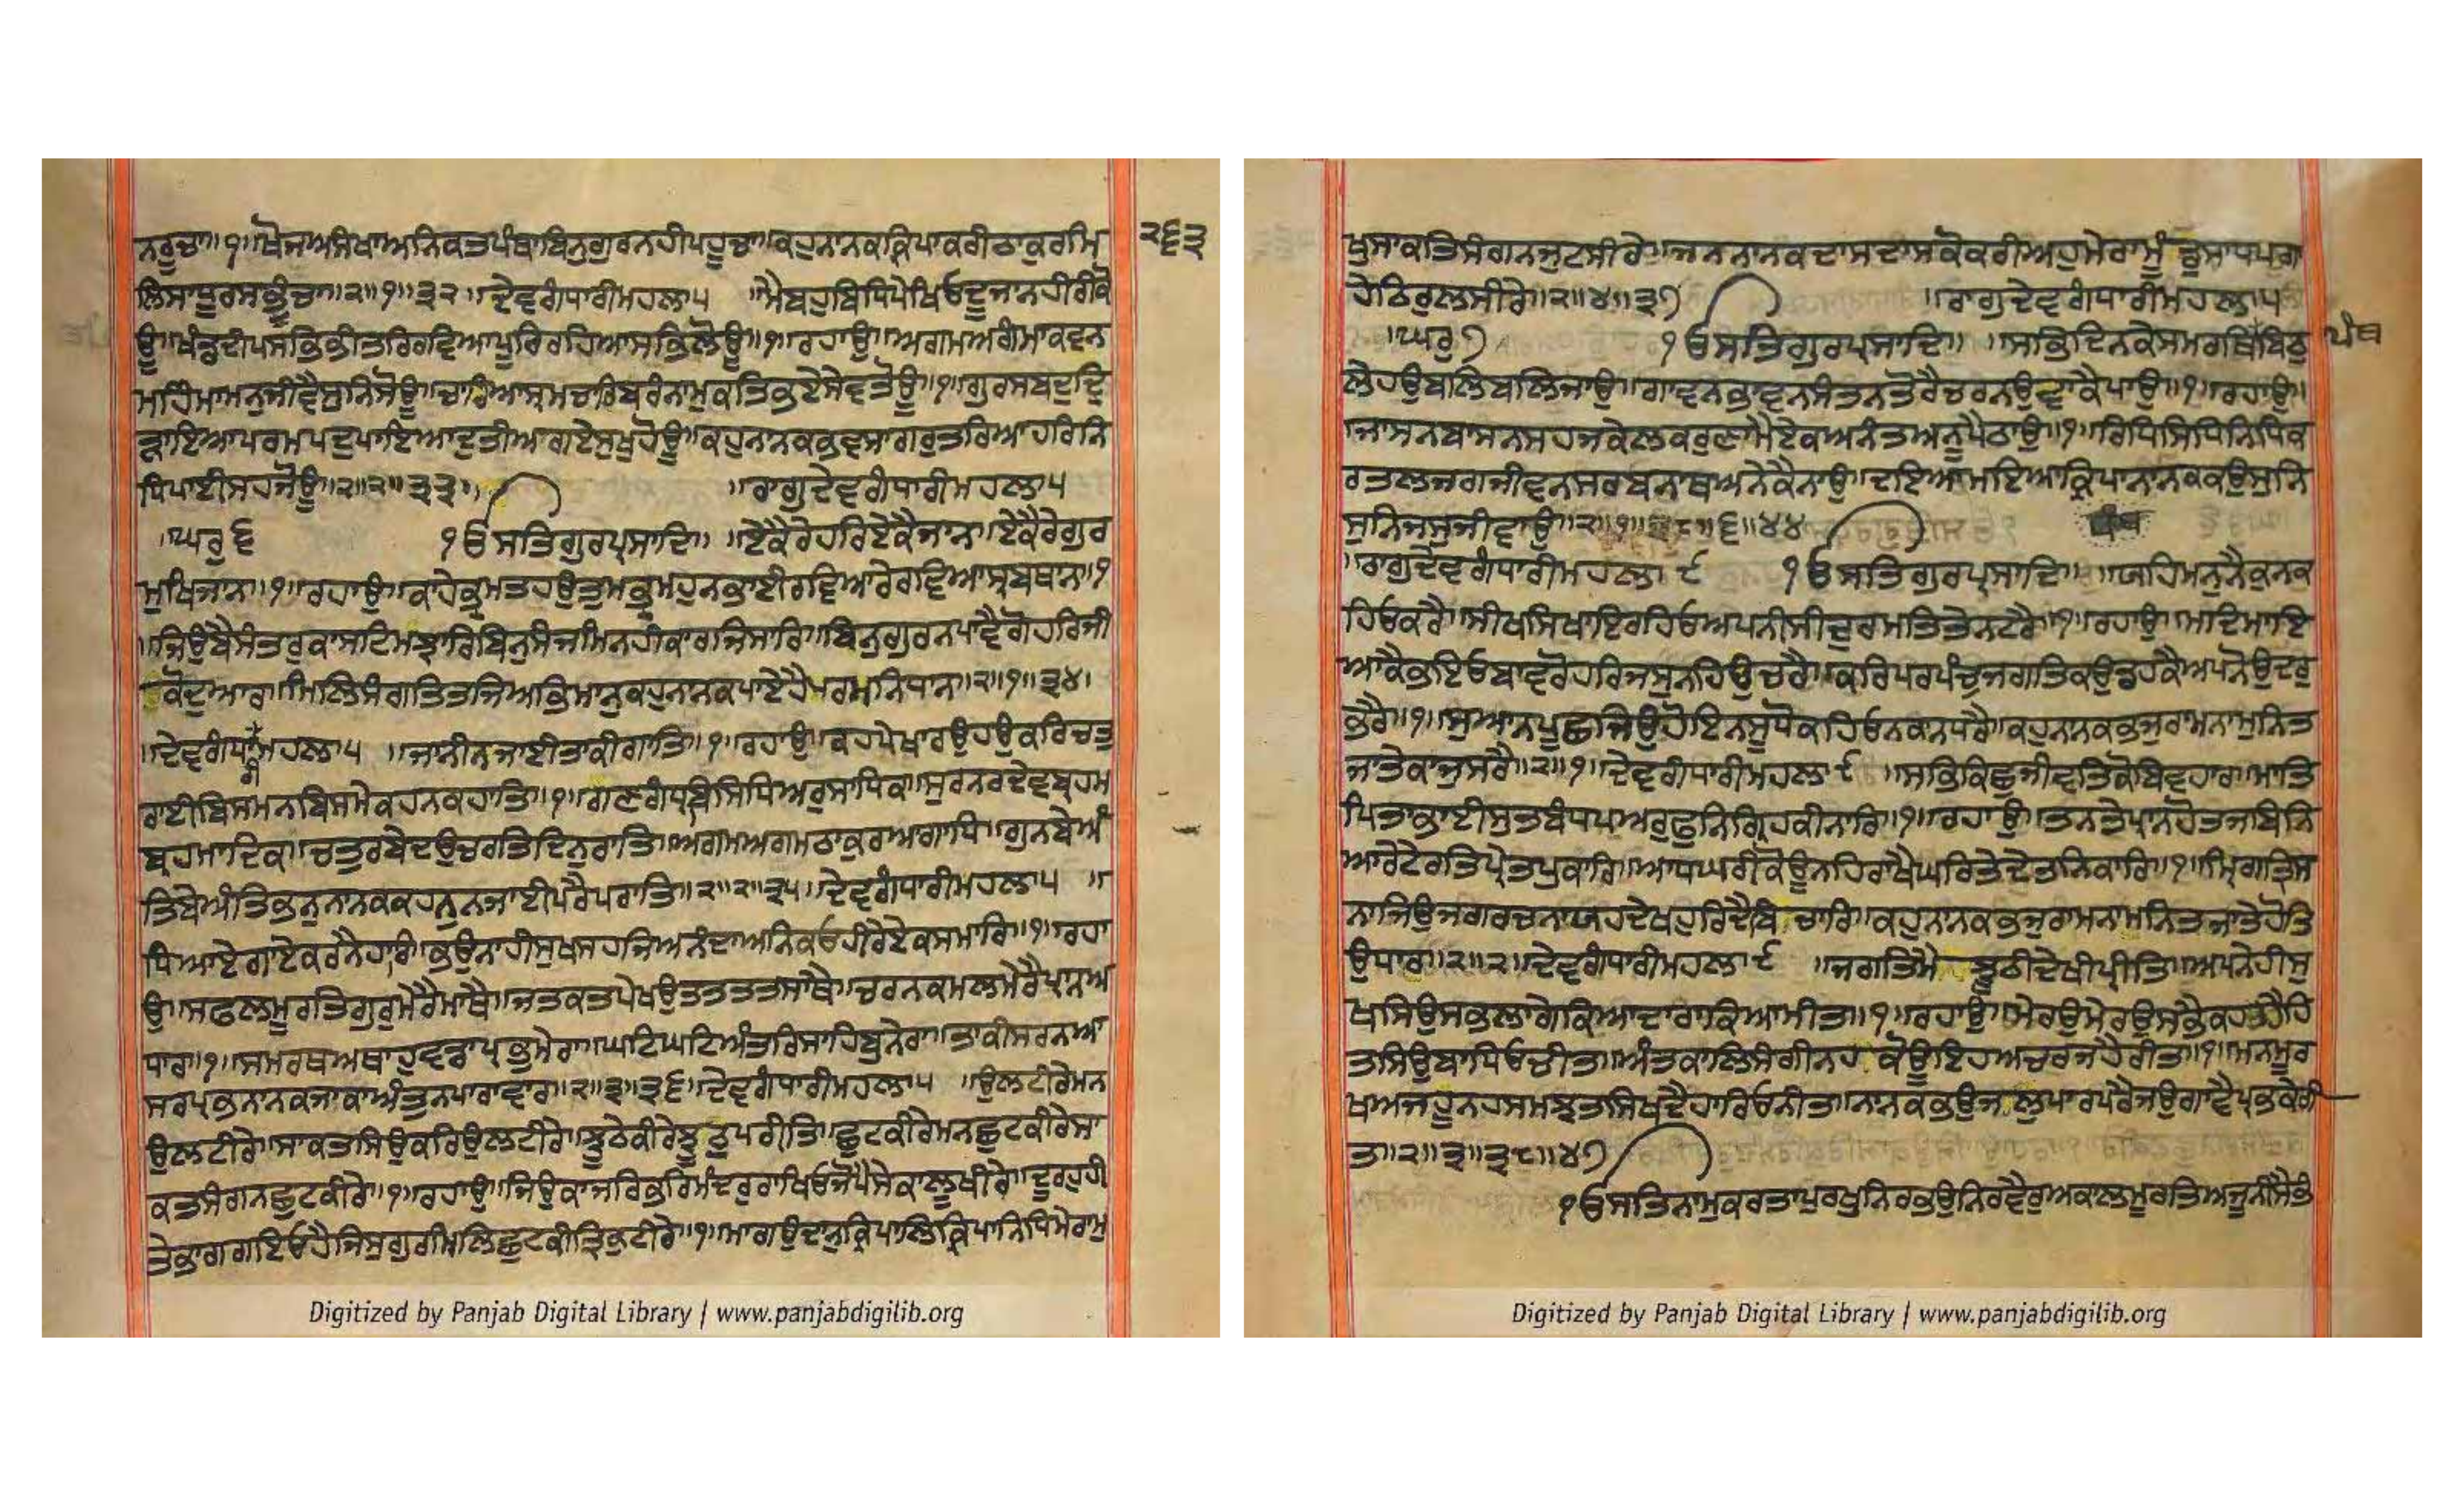 ਨਰੂਚਾ॥੧॥ਖੋਜਅਸੰਖਾਅਨਿਕਤਪੰਥਾਬਿਨੁਗੁਰਨਹੀਪਹੂਚਾ॥ਕਹੁਨਾਨਕਕ੍ਰਿਪਾਕਰੀਠਾਕੁਰਮਿ
੨੬੩
ਲਿਸਾਧੂਰਸਭੂੰਚਾ॥੨॥੧॥੩੨॥ਦੇਵਗੰਧਾਰੀਮਹਲਾ੫ ॥ਮੈਬਹੁਬਿਧਿਪੇਖਿਓਦੂਜਾਨਹੀਰੀਕੋ
ਊ॥ਖੰਡਦੀਪਸਭਿਭੀਤਰਿਰਵਿਆਪੂਰਿਰਹਿਆਸਭਿਲੋਊ॥੧॥ਰਹਾਉ॥ਅਗਮਅਗੰਮਾਕਵਨ
ਮਹਿੰਮਾਮਨੁਜੀਵੈਸੁਨਿਸੋਊ॥ਚਾਰਿਆਸ੍ਰਮਚਾਰਿਬਰੰਨਾਮੁਕਤਿਭਏਸੇਵਤੋਊ॥੧॥ਗੁਰਸਬਦੁਦ੍ਰਿ
ੜਾਇਆਪਰਮਪਦੁਪਾਇਆਦੁਤੀਅਗਏਸੁਖੁਹੋਊ॥ਕਹੁਨਾਨਕਭਵਸਾਗਰੁਤਰਿਆਹਰਿਨਿ
ਧਿਪਾਈਸਹਜੋਊ॥੨॥੨॥੩੩॥ ॥ਰਾਗੁਦੇਵਗੰਧਾਰੀਮਹਲਾ੫
॥ਘਰੁ੬ ੧ਓਸਤਿਗੁਰਪ੍ਰਸਾਦਿ॥ ॥ਏਕੈਰੇਹਰਿਏਕੈਜਾਨ॥ਏਕੈਰੇਗੁਰ
ਮੁਖਿਜਾਨ॥੧॥ਰਹਾਉ॥ਕਾਹੇਭ੍ਰਮਤਹਉਤੁਮਭ੍ਰਮਹੁਨਭਾਈਰਵਿਆਰੇਰਵਿਆਸ੍ਰਬਥਾਨ॥੧
॥ਜਿਉਬੈਸੰਤਰੁਕਾਸਟਮਝਾਰਿਬਿਨੁਸੰਜਮਿਨਹੀਕਾਰਜਸਾਰਿ॥ਬਿਨੁਗੁਰਨਪਾਵੈਗੋਹਰਿਜੀ
ਕੋਦੁਆਰ॥ਮਿਲਿਸੰਗਤਿਤਜਿਅਭਿਮਾਨੁਕਹੁਨਾਨਕਪਾਏਹੈਪਰਮਨਿਧਾਨ॥੨॥੧॥੩੪॥
॥ਦੇਵਗੰਧਾਰੀਮਹਲਾ੫ ॥ਜਾਨੀਨਜਾਈਤਾਕੀਗਾਤਿ॥੧॥ਰਹਾਉ॥ਕਹਪੇਖਾਰਉਹਉਕਰਿਚਤੁ
ਰਾਈਬਿਸਮਨਬਿਸਮੇਕਹਨਕਹਾਤਿ॥੧॥ਗਣਗੰਧ੍ਰਬਸਿਧਿਅਰੁਸਾਧਿਕ॥ਸੁਰਨਰਦੇਵਬ੍ਰਹਮ
ਬ੍ਰਹਮਾਦਿਕ॥ਚਤੁਰਬੇਦਉਚਰਤਿਦਿਨੁਰਾਤਿ॥ਅਗਮਅਗਮਠਾਕੁਰਆਗਾਧਿ॥ਗੁਨਬੇਅੰ
ਤਿਬੇਅੰਤਿਭਨੁਨਾਨਕਕਹਨੁਨਜਾਈਪਰੈਪਰਾਤਿ॥੨॥੨॥੩੫॥ਦੇਵਗੰਧਾਰੀਮਹਲਾ੫ ॥
ਧਿਆਏਗਾਏਕਰਨੈਹਾਰ॥ਭਉਨਾਹੀਸੁਖਸਹਜਿਅਨੰਦਾਅਨਿਕਓਹੀਰੇਏਕਸਮਾਰਿ॥੧॥ਰਹਾ
ਉ॥ਸਫਲਮੂਰਤਿਗੁਰੁਮੇਰੈਮਾਥੈ॥ਜਤਕਤਪੇਖਉਤਤਤਤਸਾਥੈ॥ਚਰਨਕਮਲਮੇਰੈਪ੍ਰਾਨਅ
ਧਾਰ॥੧॥ਸਮਰਥਅਥਾਹੁਵਡਾਪ੍ਰਭੁਮੇਰਾ॥ਘਟਿਘਟਿਅੰਤਰਿਸਾਹਿਬੁਨੇਰਾ॥ਤਾਕੀਸਰਨਆ
ਸਰਪ੍ਰਭਨਾਨਕਜਾਕਾਅੰਤੁਨਪਾਰਾਵਾਰ॥੨॥੩॥੩੬॥ਦੇਵਗੰਧਾਰੀਮਹਲਾ੫ ॥ਉਲਟੀਰੇਮਨ
ਉਲਟੀਰੇ॥ਸਾਕਤਸਿਉਕਰਿਉਲਟੀਰੇ॥ਝੂਠੇਕੀਰੇਝੂਠੁਪਰੀਤਿ॥ਛੁਟਕੀਰੇਮਨਛੁਟਕੀਰੇਸਾ
ਕਤਸੰਗਨਛੁਟਕੀਰੇ॥੧॥ਰਹਾਉ॥ਜਿਉਕਾਜਰਿਭਰਿਮੰਦਰੁਰਾਖਿਓਜੋਪੈਸੇਕਾਲੂਖੀਰੇ॥ਦੂਰਹੁਹੀ
ਤੇਭਾਗਗਇਓਹੈਜਿਸੁਗੁਰਮਿਲਿਛੁਟਕੀਤ੍ਰਿਕੁਟੀਰੇ॥੧॥ਮਾਗਉਦਾਨੁਕ੍ਰਿਪਾਲਿਕ੍ਰਿਪਾਨਿਧਿਮੇਰਾਮੁ
ਖੁਸਾਕਤਿਸੰਗਨਜੁਟਸੀਰੇ॥ਜਨਨਾਨਕਦਾਸਦਾਸਕੋਕਰੀਅਹੁਮੇਰਾਮੂੰਡੁਸਾਧਪਗਾ
ਹੇਠਿਰੁਲਸੀਰੇ॥੨॥੪॥੩੭ ॥ਰਾਗੁਦੇਵਗੰਧਾਰੀਮਹਲਾ੫
॥ਘਰੁ੭ ੧ਓਸਤਿਗੁਰਪ੍ਰਸਾਦਿ॥ ॥ਸਭਿਦਿਨਕੇਸਮਰਥਬਿਠੁ
ਪੰਥ
ਲੇਹਉਬਲਿਬਲਿਜਾਉ॥ਗਾਵਨਭਾਵਨਸੰਤਨਤੋਰੈਚਰਨਉਵਾਕੈਪਾਉ॥੧॥ਰਹਾਉ॥
ਜਾਸਨਬਾਸਨਸਹਜਕੇਲਕਰੁਣਾਮੈਏਕਅਨੰਤਅਨੂਪੈਠਾਉ॥੧॥ਰਿਧਿਸਿਧਿਨਿਧਿਕ
ਰਤਲਜਗਜੀਵਨਸਰਬਨਾਥਅਨੇਕੈਨਾਉ॥ਦਇਆਮਇਆਕ੍ਰਿਪਾਨਾਨਕਕਉਸੁਨਿ
ਸੁਨਿਜਸੁਜੀਵਾਉ॥੨॥੧॥੩੮॥੬॥੪੪ ਪੰਥ
॥ਰਾਗੁਦੇਵਗੰਧਾਰੀਮਹਲਾ ੯ ੧ਓਸਤਿਗੁਰਪ੍ਰਸਾਦਿ॥ ॥ਯਹਿਮਨੁਨੈਕੁਨਕ
ਹਿਓਕਰੈ॥ਸੀਖਸਿਖਾਇਰਹਿਓਅਪਨੀਸੀਦੁਰਮਤਿਤੇਨਟਰੈ॥੧॥ਰਹਾਉ॥ਮਦਿਮਾਇ
ਆਕੈਭਇਓਬਾਵਰੋਹਰਿਜਸੁਨਹਿਉਚਰੈ॥ਕਰਿਪਰਪੰਚੁਜਗਤਿਕਉਡਹਕੈਅਪਨੋਉਦਰੁ
ਭਰੈ॥੧॥ਸੁਆਨਪੂਛਜਿਉਹੋਇਨਸੂਧੋਕਹਿਓਨਕਾਨਧਰੈ॥ਕਹੁਨਾਨਕਭਜੁਰਾਮਨਾਮੁਨਿਤ
ਜਾਤੇਕਾਜੁਸਰੈ॥੨॥੧॥ਦੇਵਗੰਧਾਰੀਮਹਲਾ ੯ ॥ਸਭਿਕਿਛੁਜੀਵਤਿਕੋਬਿਵਹਾਰ॥ਮਾਤਿ
ਪਿਤਾਭਾਈਸੁਤਬੰਧਪਅਰੁਫੁਨਿਗ੍ਰਿਹਕੀਨਾਰਿ॥੧॥ਰਹਾਉ॥ਤਨਤੇਪ੍ਰਾਨਹੋਤਜਬਿਨਿ
ਆਰੇਟੇਰਤਿਪ੍ਰੇਤਪੁਕਾਰਿ॥ਆਧਘਰੀਕੋਊਨਹਿਰਾਖੈਘਰਿਤੇਦੇਤਨਿਕਾਰਿ॥੧॥ਮ੍ਰਿਗਤ੍ਰਿਸ
ਨਾਜਿਉਜਗਰਚਨਾਯਹਦੇਖਹੁਰਿਦੈਬਿਚਾਰਿ॥ਕਹੁਨਾਨਕਭਜੁਰਾਮਨਾਮਨਿਤਜਾਤੇਹੋਤਿ
ਉਧਾਰ॥੨॥੨॥ਦੇਵਗੰਧਾਰੀਮਹਲਾ ੯ ॥ਜਗਤਿਮੈ ਝੂਠੀਦੇਖੀਪ੍ਰੀਤਿ॥ਅਪਨੇਹੀਸੁ
ਖਸਿਉਸਭਲਾਗੇਕਿਆਦਾਰਾਕਿਆਮੀਤ॥੧॥ਰਹਾਉ॥ਮੇਰਉਮੇਰਉਸਭੈਕਹਤਹੈਹਿ
ਤਸਿਉਬਾਧਿਓਚੀਤ॥ਅੰਤਕਾਲਿਸੰਗੀਨਹਕੋਊਇਹਅਚਰਜਹੈਰੀਤ॥੧॥ਮਨਮੂਰ
ਖਅਜਹੂਨਹਸਮਝਤਸਿਖਦੈਹਾਰਿਓਨੀਤ॥ਨਾਨਕਭਉਜਲੁਪਾਰਪਰੈਜਉਗਾਵੈਪ੍ਰਭਕੇਗੀ
ਤ॥੨॥੩॥੩੮॥੪੭
੧ਓਸਤਿਨਾਮੁਕਰਤਾਪੁਰਖੁਨਿਰਭਉਨਿਰਵੈਰੁਅਕਾਲਮੂਰਤਿਅਜੂਨੀਸੈਭੰ
Digitized by Panjab Digital Library | www.panjabdigilib.org
Digitized by Panjab Digital Library | www.panjabdigilib.org